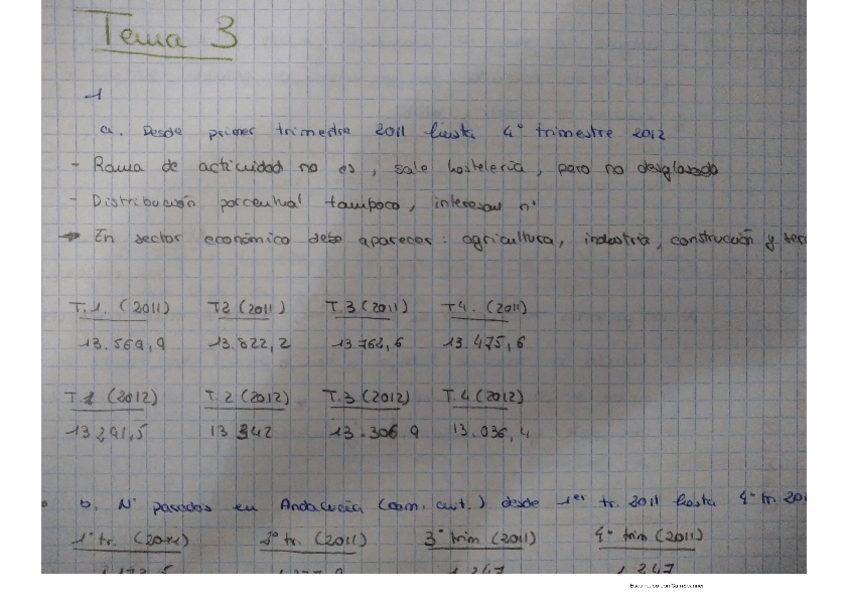 Tema 3
1
a. Desde primer trimestre 2011 hasta 4º trimestre 2012
- Rama de actividad no es, sale hostelería, pero no desglosado
- Distribución porcentual tampoco, interesan nº
→ En sector económico debe aparecer: agricultura, industria, construcción y ter
T.1. (2011) T2 (2011) T.3 (2011) T4. (2011)
13.569,9 13.822,2 13.763,6 13.475,6
T.1 (2012) T.2 (2012) T.3 (2012) T.4 (2012)
13.291,5 13 342 13.306 9 13.036,4
b. Nº parados en Andalucía (com. aut.) desde 1er tr. 2011 hasta 4º tr. 20
1º tr. (2011) 2º tr. (2011) 3º trim (2011) 4º trim (2011)
1.247 1.247